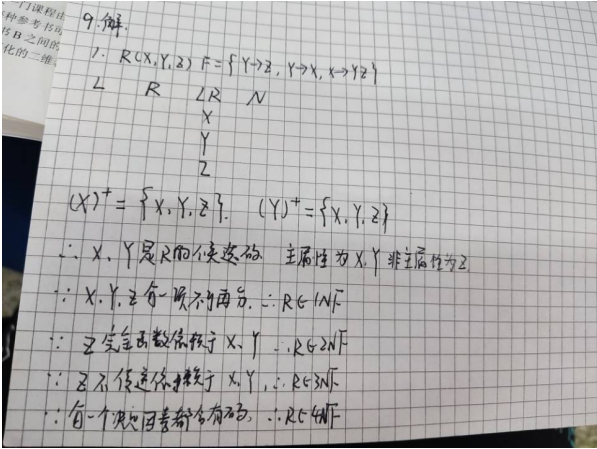 一门课程由
种参考书可
书 B 之间的
化的二维
9.解.
1. R(X,Y,Z) F={Y→Z, Y→X, X→YZ}
L R LR N
X
Y
Z
(X)⁺={X,Y,Z}. (Y)⁺={X,Y,Z}
∴ X、Y是R的候选码 主属性为X,Y 非主属性为Z
∵ X,Y,Z每一项不可再分 ∴R∈1NF
∵ Z完全函数依赖于X、Y ∴R∈2NF
∵ Z不传递依赖于X,Y, ∴R∈3NF
∵每一个决定因素都含有码, ∴R∈4NF